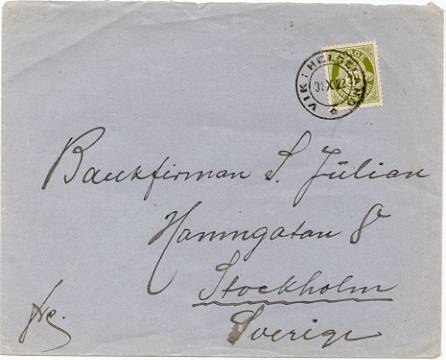 VIK i HELGELAND
31 X 22
NORGE
Bankfirman S. Julian
Hamngatan 8
Stockholm
Sverige